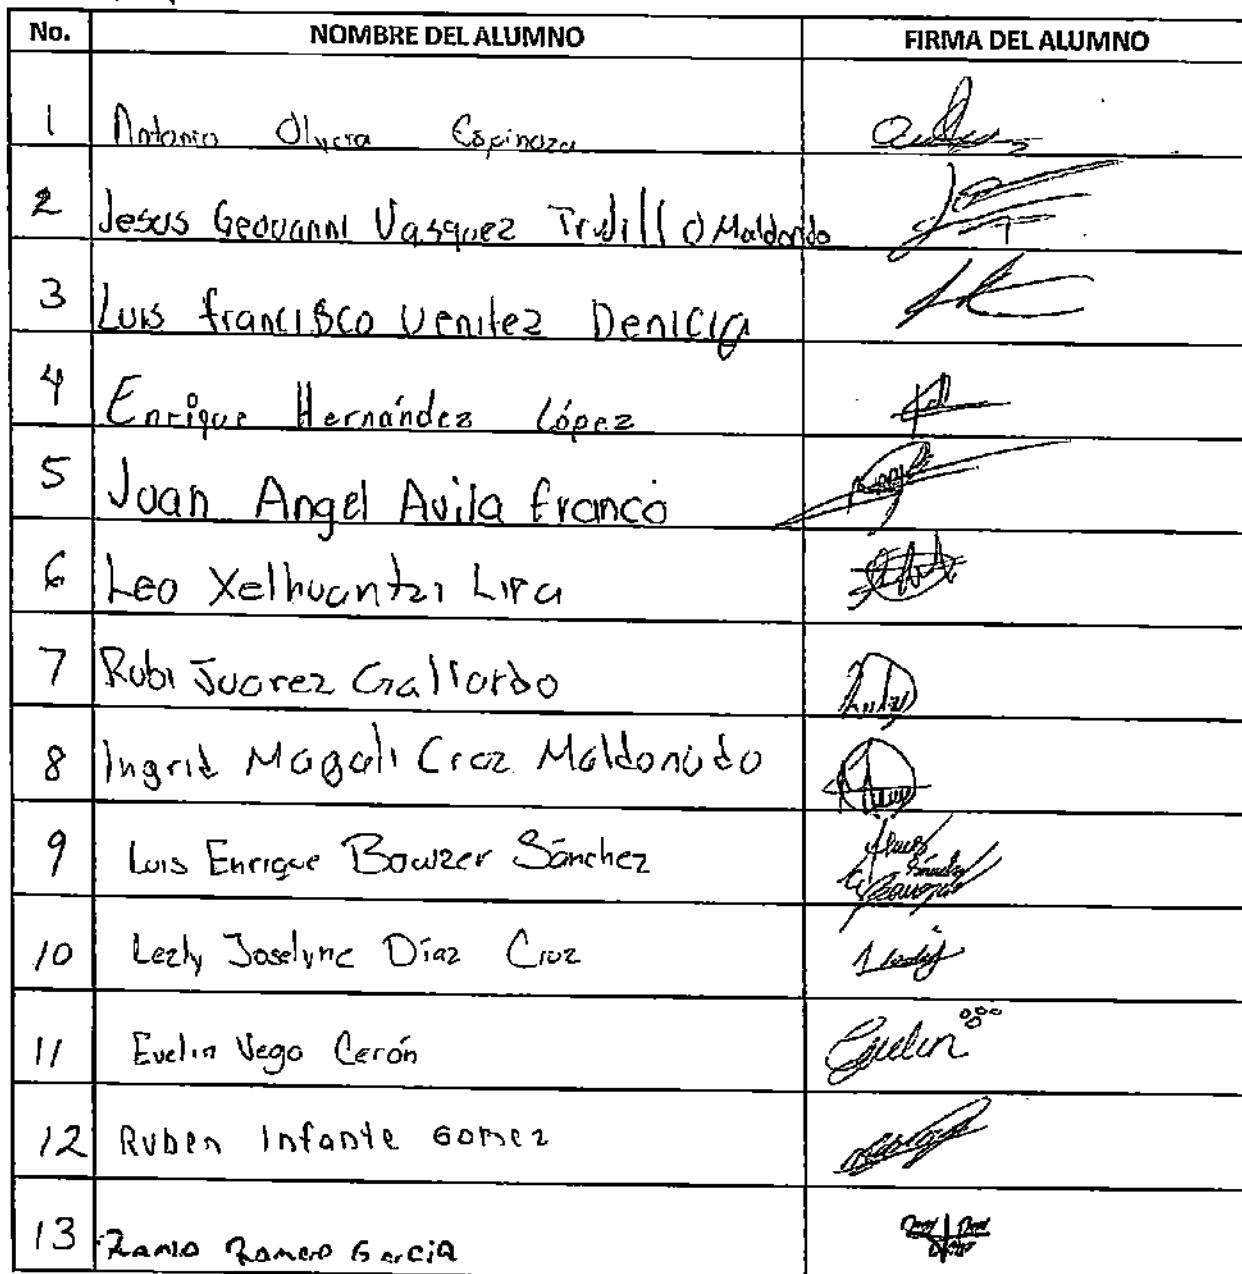 No. NOMBRE DEL ALUMNO FIRMA DEL ALUMNO
1 Antonio Olvera Espinoza
2 Jesus Geovanni Vasquez Trujillo Maldondo
3 Luis francisco Venitez Denicia
4 Enrique Hernández López
5 Juan Angel Avila franco
6 Leo Xelhuantzi Lira
7 Rubi Juarez Gallardo
8 Ingrid Magali Cruz Maldonado
9 Luis Enrique Bowzer Sánchez
10 Lezly Joselyne Díaz Cruz
11 Evelin Vega Cerón Evelin
12 Ruben Infante Gomez
13 Romero Garcia